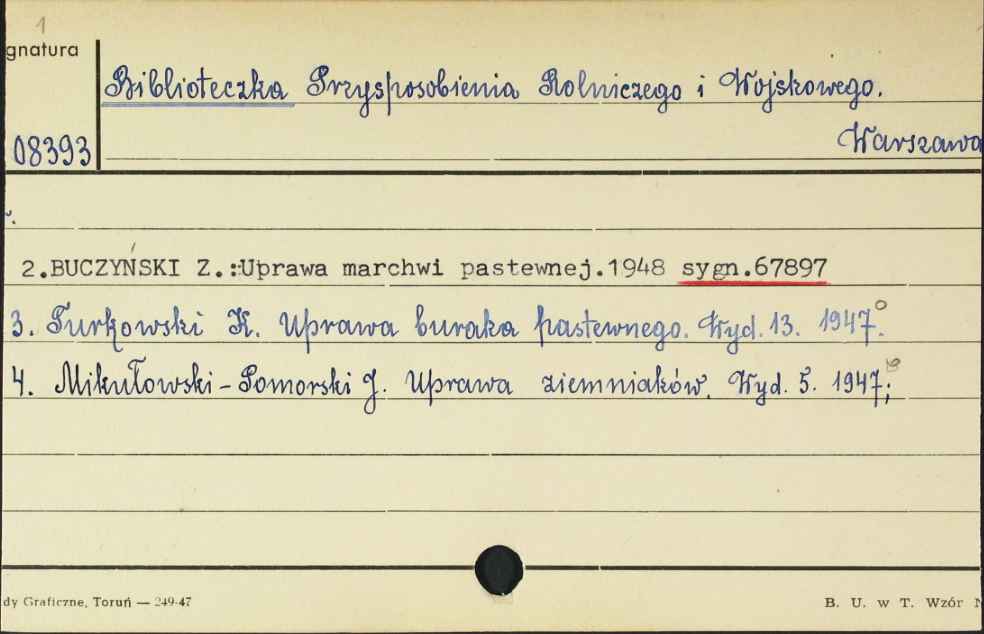 1
gnatura
Biblioteczka Przysposobienia Rolniczego i Wojskowego.
08393
Warszawa
2.BUCZYŃSKI Z.:Uprawa marchwi pastewnej.1948 sygn.67897
3. Turkowski K. Uprawa buraka pastewnego. Wyd. 13. 1947.
4. Mikułowski-Pomorski J. Uprawa ziemniaków. Wyd. 5. 1947;
dy Graficzne, Toruń — 249-47
B. U. w T. Wzór N